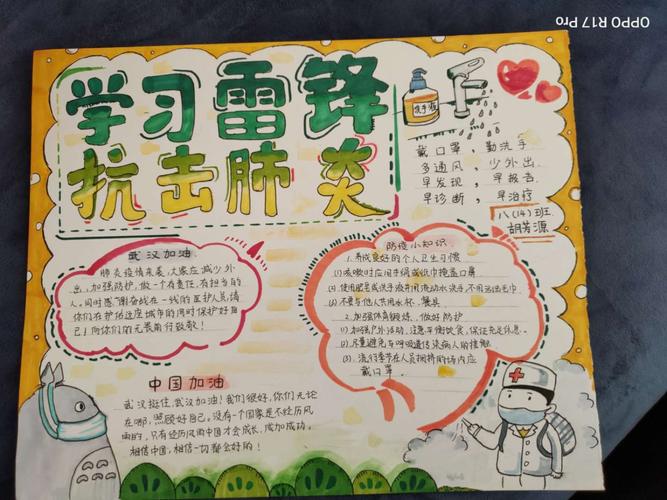 OPPO R17 Pro
学习雷锋
抗击肺炎
洗手液
戴口罩,勤洗手
多通风,少外出
早发现,早报告
早诊断,早治疗
八(14)班
胡芳源
武汉加油
肺炎疫情来袭,大家应减少外
出,加强防护,做一个有责任,有担当的
人。同时感谢奋战在一线的医护人员,请
你们在护佑这座城市的同时保护好自
己!向你们的无畏前行致敬!
防疫小知识
1.养成良好的个人卫生习惯
(1)咳嗽时应用手绢或纸巾掩盖口鼻
(2)使用肥皂或洗手液并用流动水洗手,不用污浊毛巾
(3)不要与他人共用水杯、餐具
2.加强体育锻炼,做好防护
(1)加强户外活动,注意平衡饮食,保证充足休息。
(2)尽量避免与呼吸道传染病人的接触
(3)流行季节在人员拥挤的场所应
戴口罩。
中国加油
武汉挺住,武汉加油!我们很好,你们无论
在哪,照顾好自己。没有一个国家是不经历风
雨的,只有经历风雨中国才会成长,成加成功。
相信中国,相信一切都会好的!